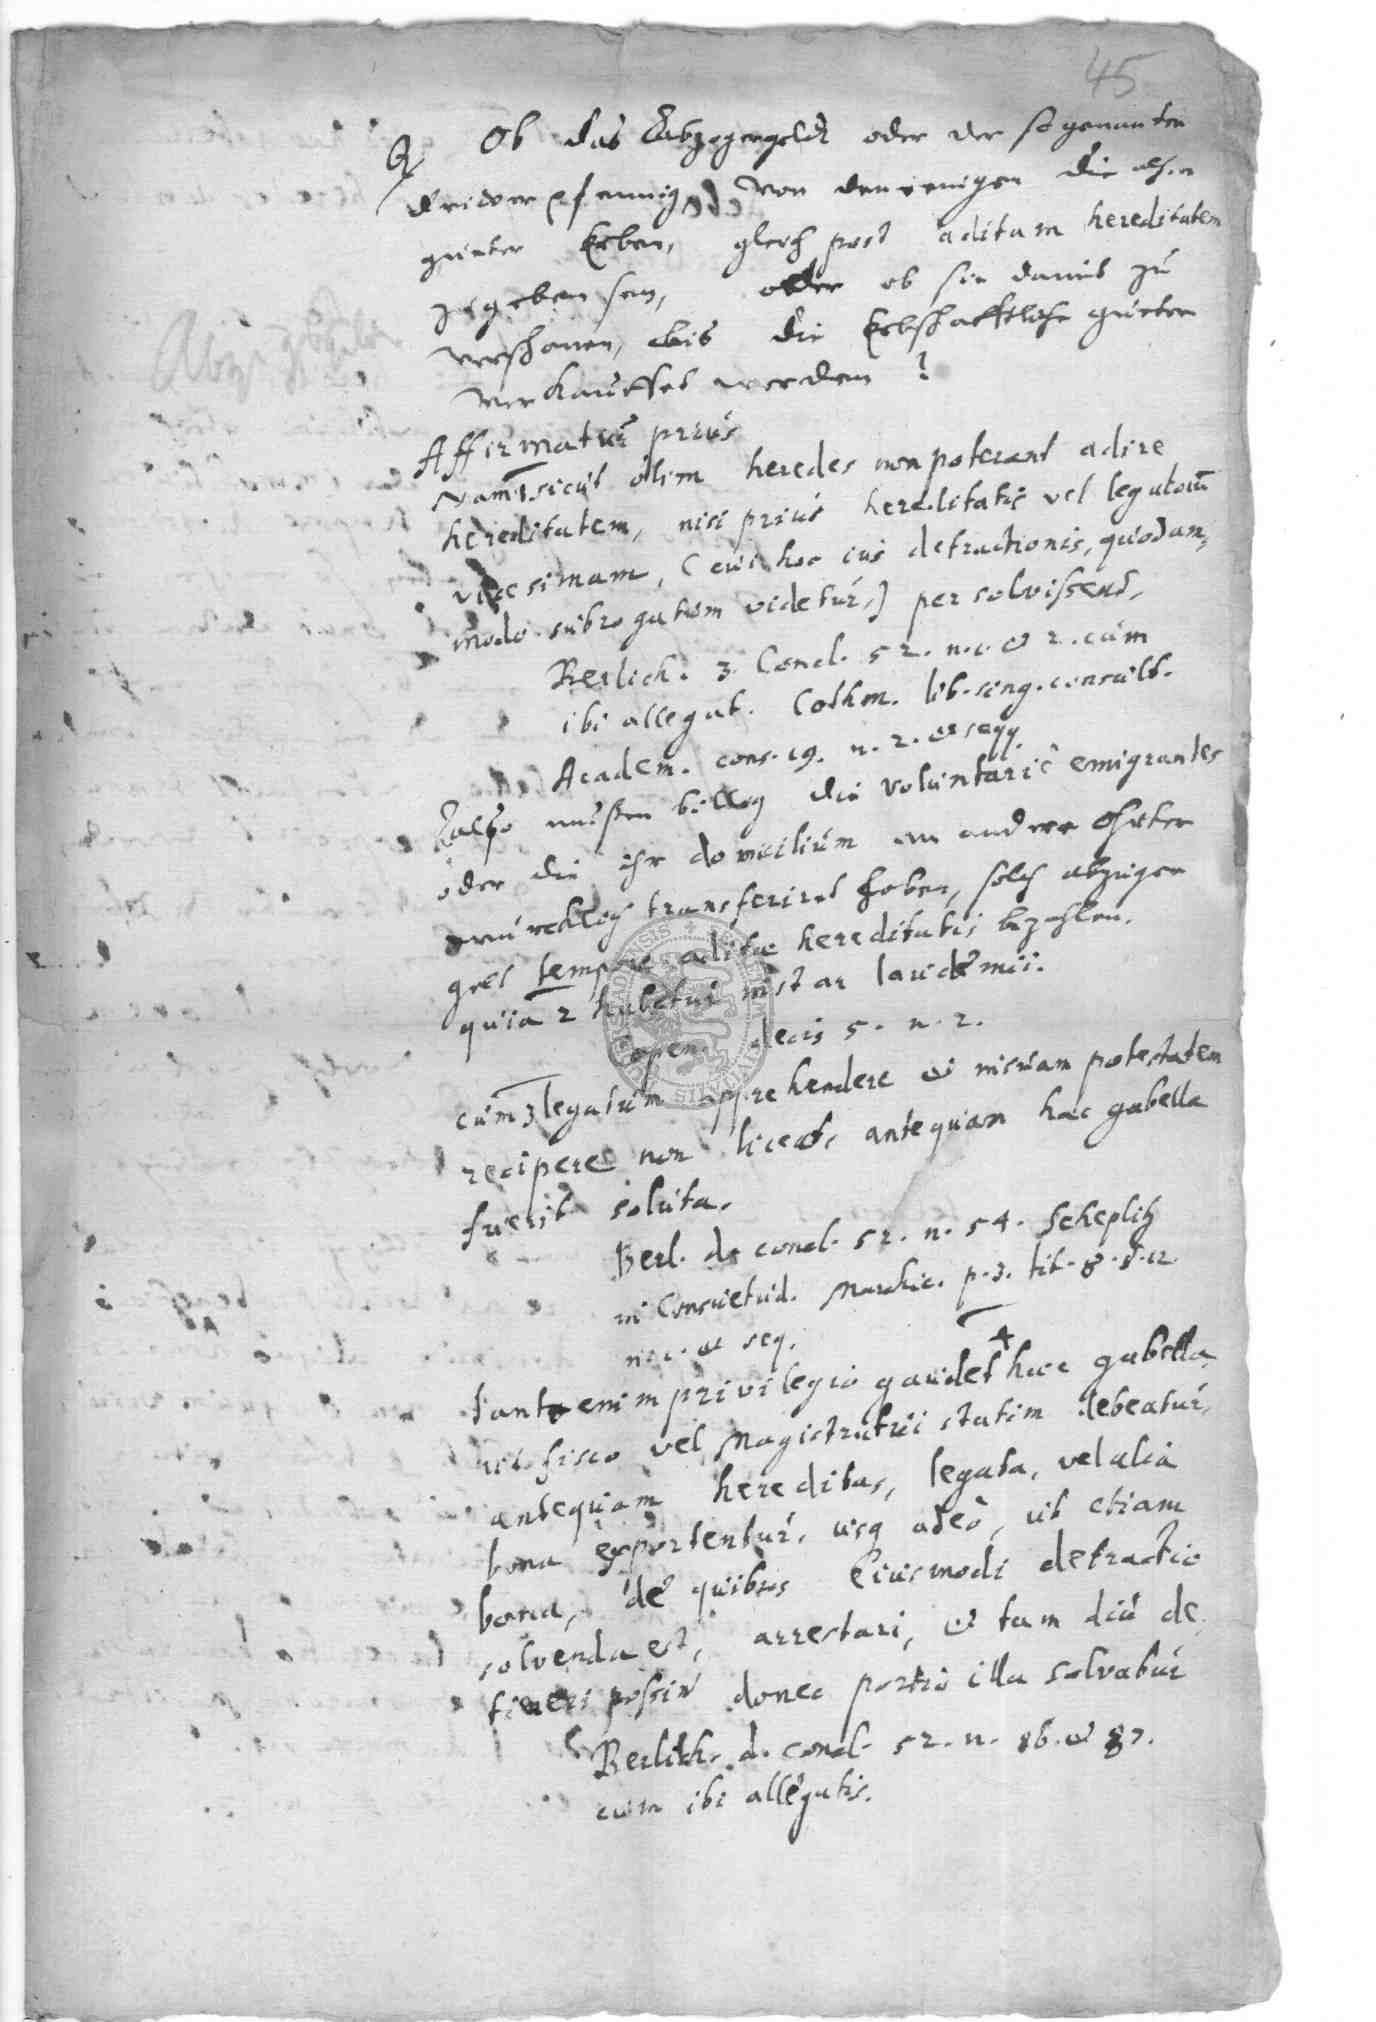 45
Q Ob das Abzugsgeldt oder der so genanten
dritter pfennig von denienigen die
güeter Erben, gleich post aditam hereditatem
zu geben sey, oder ob sie damit zu
verschonen, bis die Erbschafftliche güeter
verkauffet werden?
Affirmatur prius
Nam 1 sicut olim heredes non poterant adire
hereditatem, nisi prius hereditatis vel legatorum
vicesimam, (cui hoc ius detractionis, quodam,
modo subrogatum videtur,) persolvissent,
Berlich. 3. Concl. 52. n. 1. et 2. cum
ibi allegat. Cothm. lib. sing. consult.
Academ. cons. 19. n. 2. et seqq.
Also müssen billig die voluntariè emigrantes
oder die ihr domicilium an andere Öhrter
würcklich transferiret haben, solch abzugs
gelt tempore aditae hereditatis bezahlen.
quia 2 habetur instar laudemii.
Copen. decis 5. n. 2.
cum 3 legatum apprehendere et in suam potestatem
recipere non liceat, antequam haec gabella
fuerit soluta.
Berl. d. concl. 52. n. 54. Scheplitz
in Consuetud. Marchic. p. 3. tit. 8. §. 12
n. 1. et seq.
tanto enim privilegio gaudet 4 haec gabella,
ut fisco vel Magistratui statim debeatur,
antequam hereditas, legata, vel alia
bona exportentur, usq adeò, ut etiam
bona, de quibus Eiusmodi detractio
solvenda est, arrestari, et tam diu de
tineri possint donec portio illa solvatur
Berlich. d. concl. 52. n. 86. et 87.
cum ibi allegatis.